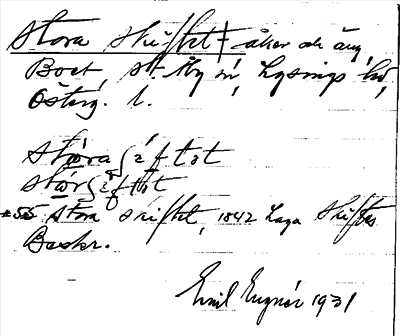 Stora skiftet, åker och äng,
Boet, St. Åby sn, Lysings hd,
Österg. l.
stora
stor
Stora skiftet, 1842 Laga Skiftes
Beskr.
Emil Engnér 1931